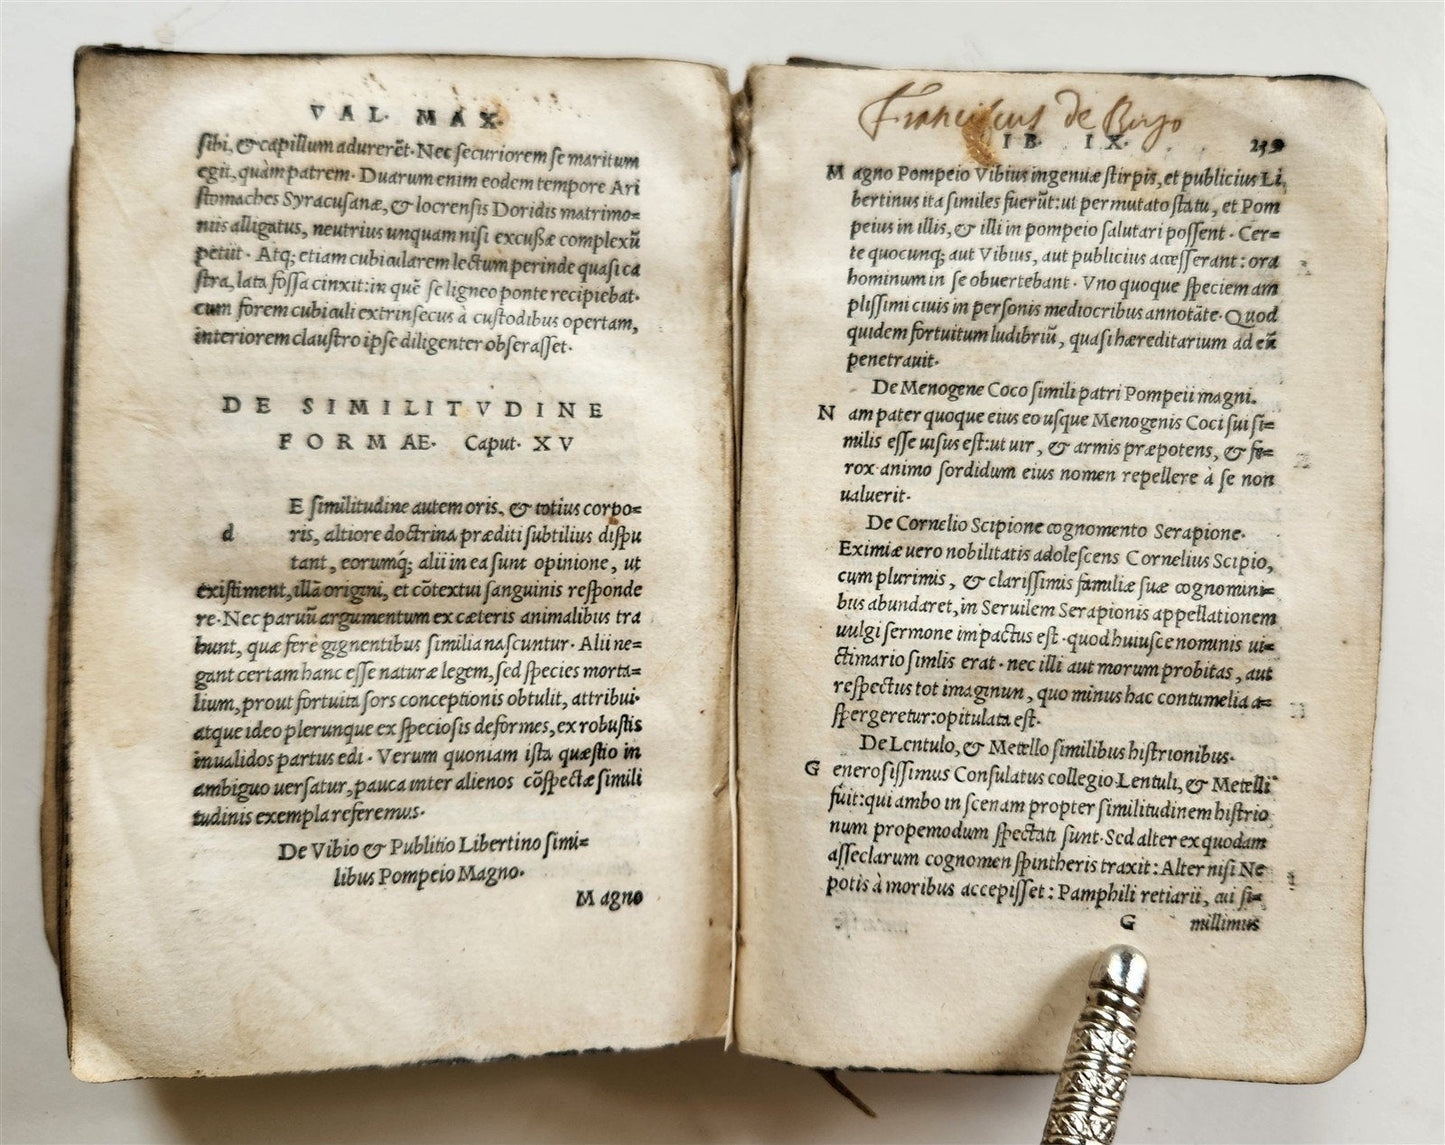 VAL. MAX.
sibi, & capillum adurerēt. Nec securiorem se maritum
egit, quàm patrem. Duarum enim eodem tempore Ari
stomaches Syracusanæ, & locrensis Doridis matrimo=
niis alligatus, neutrius unquam nisi excussæ complexū
petiit. Atq; etiam cubicularem lectum perinde quasi ca
stra, lata fossa cinxit: in quē se ligneo ponte recipiebat.
cum forem cubiculi extrinsecus à custodibus opertam,
interiorem claustro ipse diligenter obserasset.
DE SIMILITVDINE
FORMAE. Caput. XV
E similitudine autem oris, & totius corpo=
d ris, altiore doctrina præditi subtilius dispu
tant, eorumq́; alii in ea sunt opinione, ut
existiment, illā origini, et cōtextui sanguinis responde
re. Nec paruū argumentum ex cæteris animalibus tra
hunt, quæ ferè gignentibus similia nascuntur. Alii ne=
gant certam hanc esse naturæ legem, sed species morta=
lium, prout fortuita sors conceptionis obtulit, attribui.
atque ideo plerunque ex speciosis deformes, ex robustis
inualidos partus edi. Verum quoniam ista quæstio in
ambiguo uersatur, pauca inter alienos cōspectæ simili
tudinis exempla referemus.
De Vibio & Publitio Libertino simi=
libus Pompeio Magno.
Magno
Franciscus de Burgo
IB. IX. 239
Magno Pompeio Vibius ingenuæ stirpis, et publicius Li,
bertinus ita similes fuerūt: ut permutato statu, et Pom
peius in illis, & illi in pompeio salutari possent. Cer=
te quocunq; aut Vibius, aut publicius accesserant: ora
hominum in se obuertebant. Vno quoque speciem am
plissimi ciuis in personis mediocribus annotāte. Quod
quidem fortuitum ludibriū, quasi hæreditarium ad eū
penetrauit.
De Menogene Coco simili patri Pompeii magni.
Nam pater quoque eius eo usque Menogenis Coci sui si=
milis esse uisus est: ut uir, & armis præpotens, & fe=
rox animo sordidum eius nomen repellere à se non
ualuerit.
De Cornelio Scipione cognomento Serapione.
Eximiæ uero nobilitatis adolescens Cornelius Scipio,
cum plurimis, & clarissimis familiæ suæ cognomini=
bus abundaret, in Seruilem Serapionis appellationem
uulgi sermone impactus est. quod huiusce nominis ui=
ctimario simlis erat. nec illi aut morum probitas, aut
respectus tot imaginun, quo minus hac contumelia a=
spergeretur: opitulata est.
De Lentulo, & Metello similibus histrionibus.
Generosissimus Consulatus collegio Lentuli, & Metelli
fuit: qui ambo in scenam propter similitudinem histrio
num propemodum spectati sunt. Sed alter ex quodam
asseclarum cognomen spintheris traxit: Alter nisi Ne
potis à moribus accepisset: Pamphili retiarii, cui si=
G millimus